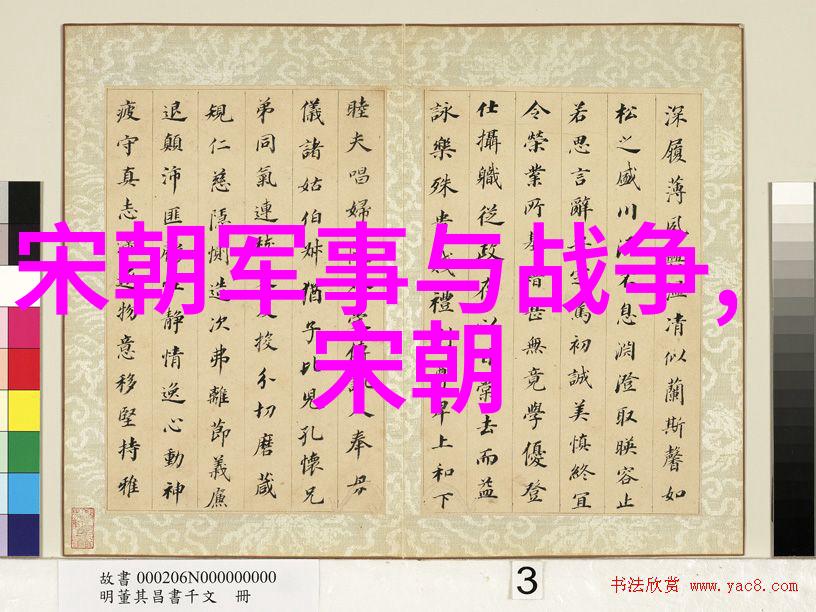 宋朝军事与战争，
宋朝
深履薄夙清似蘭斯馨如
松之盛川不息淵澄取暎容止
若思言辭馬初誠美慎終宜
令榮業所基無竟學優登
仕攝職從政存棠去而益
詠樂殊貴禮卑上和下
睦夫唱婦入奉母
儀諸姑伯叔猶子比兒孔懷兄
弟同氣連投分切磨箴
規仁慈隱惻造次弗離節義廉
退顛沛匪性靜情逸心動神
疲守真志逐物意移堅持雅
故書 000206N000000000
明董其昌書千文 冊
3
书法欣赏 www.yac8.com